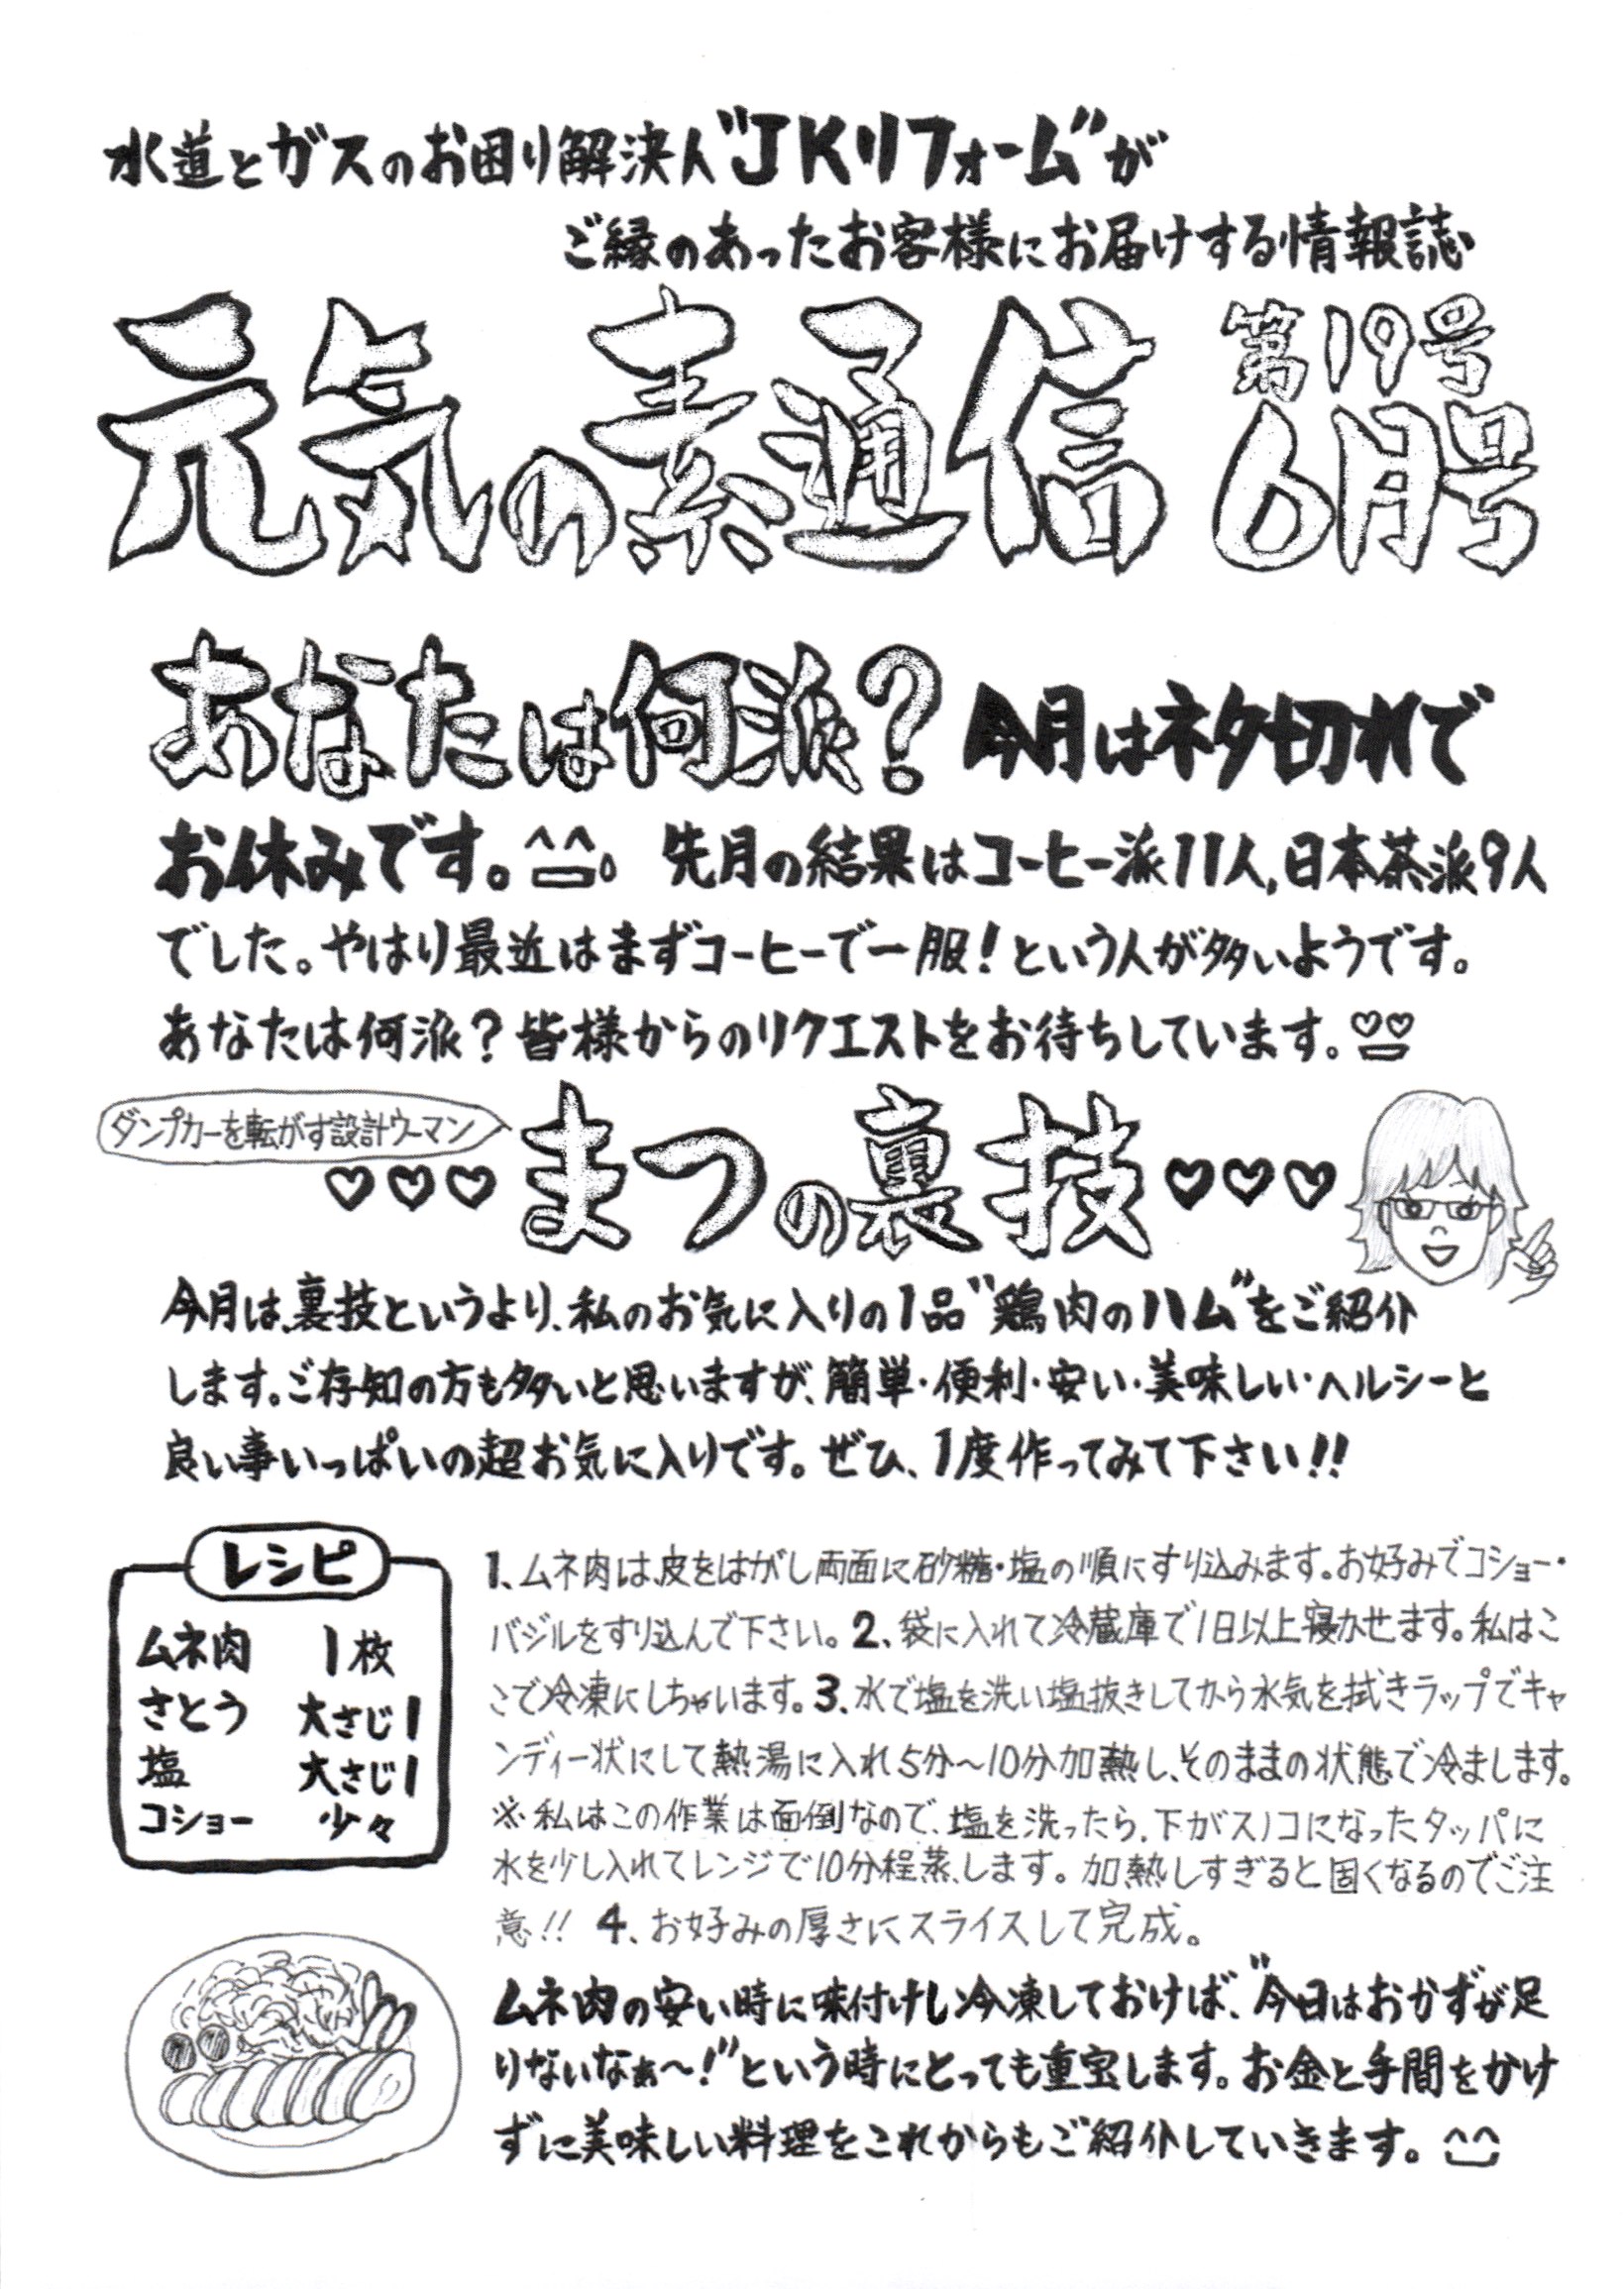 水道とガスのお困り解決人"JKリフォーム"が
ご縁のあったお客様にお届けする情報誌
元気の素通信 第19号
6月号
あなたは何派？今月はネタ切れで
お休みです。^^。先月の結果はコーヒー派11人,日本茶派9人
でした。やはり最近はまずコーヒーで一服！という人が多いようです。
あなたは何派？皆様からのリクエストをお待ちしています。♡♡
ダンプカーを転がす設計ウーマン
♡♡♡まつの裏技♡♡♡
今月は、裏技というより、私のお気に入りの1品"鶏肉のハム"をご紹介
します。ご存知の方も多いと思いますが、簡単・便利・安い・美味しい・ヘルシーと
良い事いっぱいの超お気に入りです。ぜひ、1度作ってみて下さい!!
レシピ
ムネ肉 1枚
さとう 大さじ1
塩 大さじ1
コショー 少々
1、ムネ肉は、皮をはがし両面に砂糖・塩の順にすり込みます。お好みでコショー・
バジルをすり込んで下さい。2、袋に入れて冷蔵庫で1日以上寝かせます。私はこ
こで冷凍にしちゃいます。3、水で塩を洗い塩抜きしてから水気を拭きラップでキャ
ンディー状にして熱湯に入れ5分～10分加熱し、そのままの状態で冷まします。
※私はこの作業は面倒なので、塩を洗ったら、下がスノコになったタッパに
水を少し入れてレンジで10分程蒸します。加熱しすぎると固くなるのでご注
意!! 4、お好みの厚さにスライスして完成。
ムネ肉の安い時に味付けし冷凍しておけば、"今日はおかずが足
りないなぁ～！"という時にとっても重宝します。お金と手間をかけ
ずに美味しい料理をこれからもご紹介していきます。^^